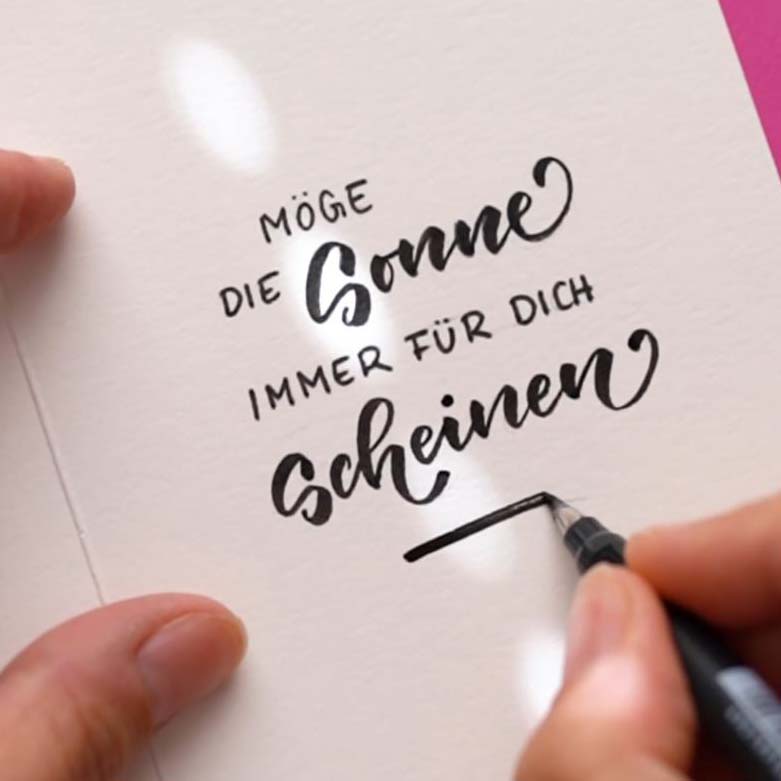 MÖGE
DIE Sonne
IMMER FÜR DICH
Scheinen